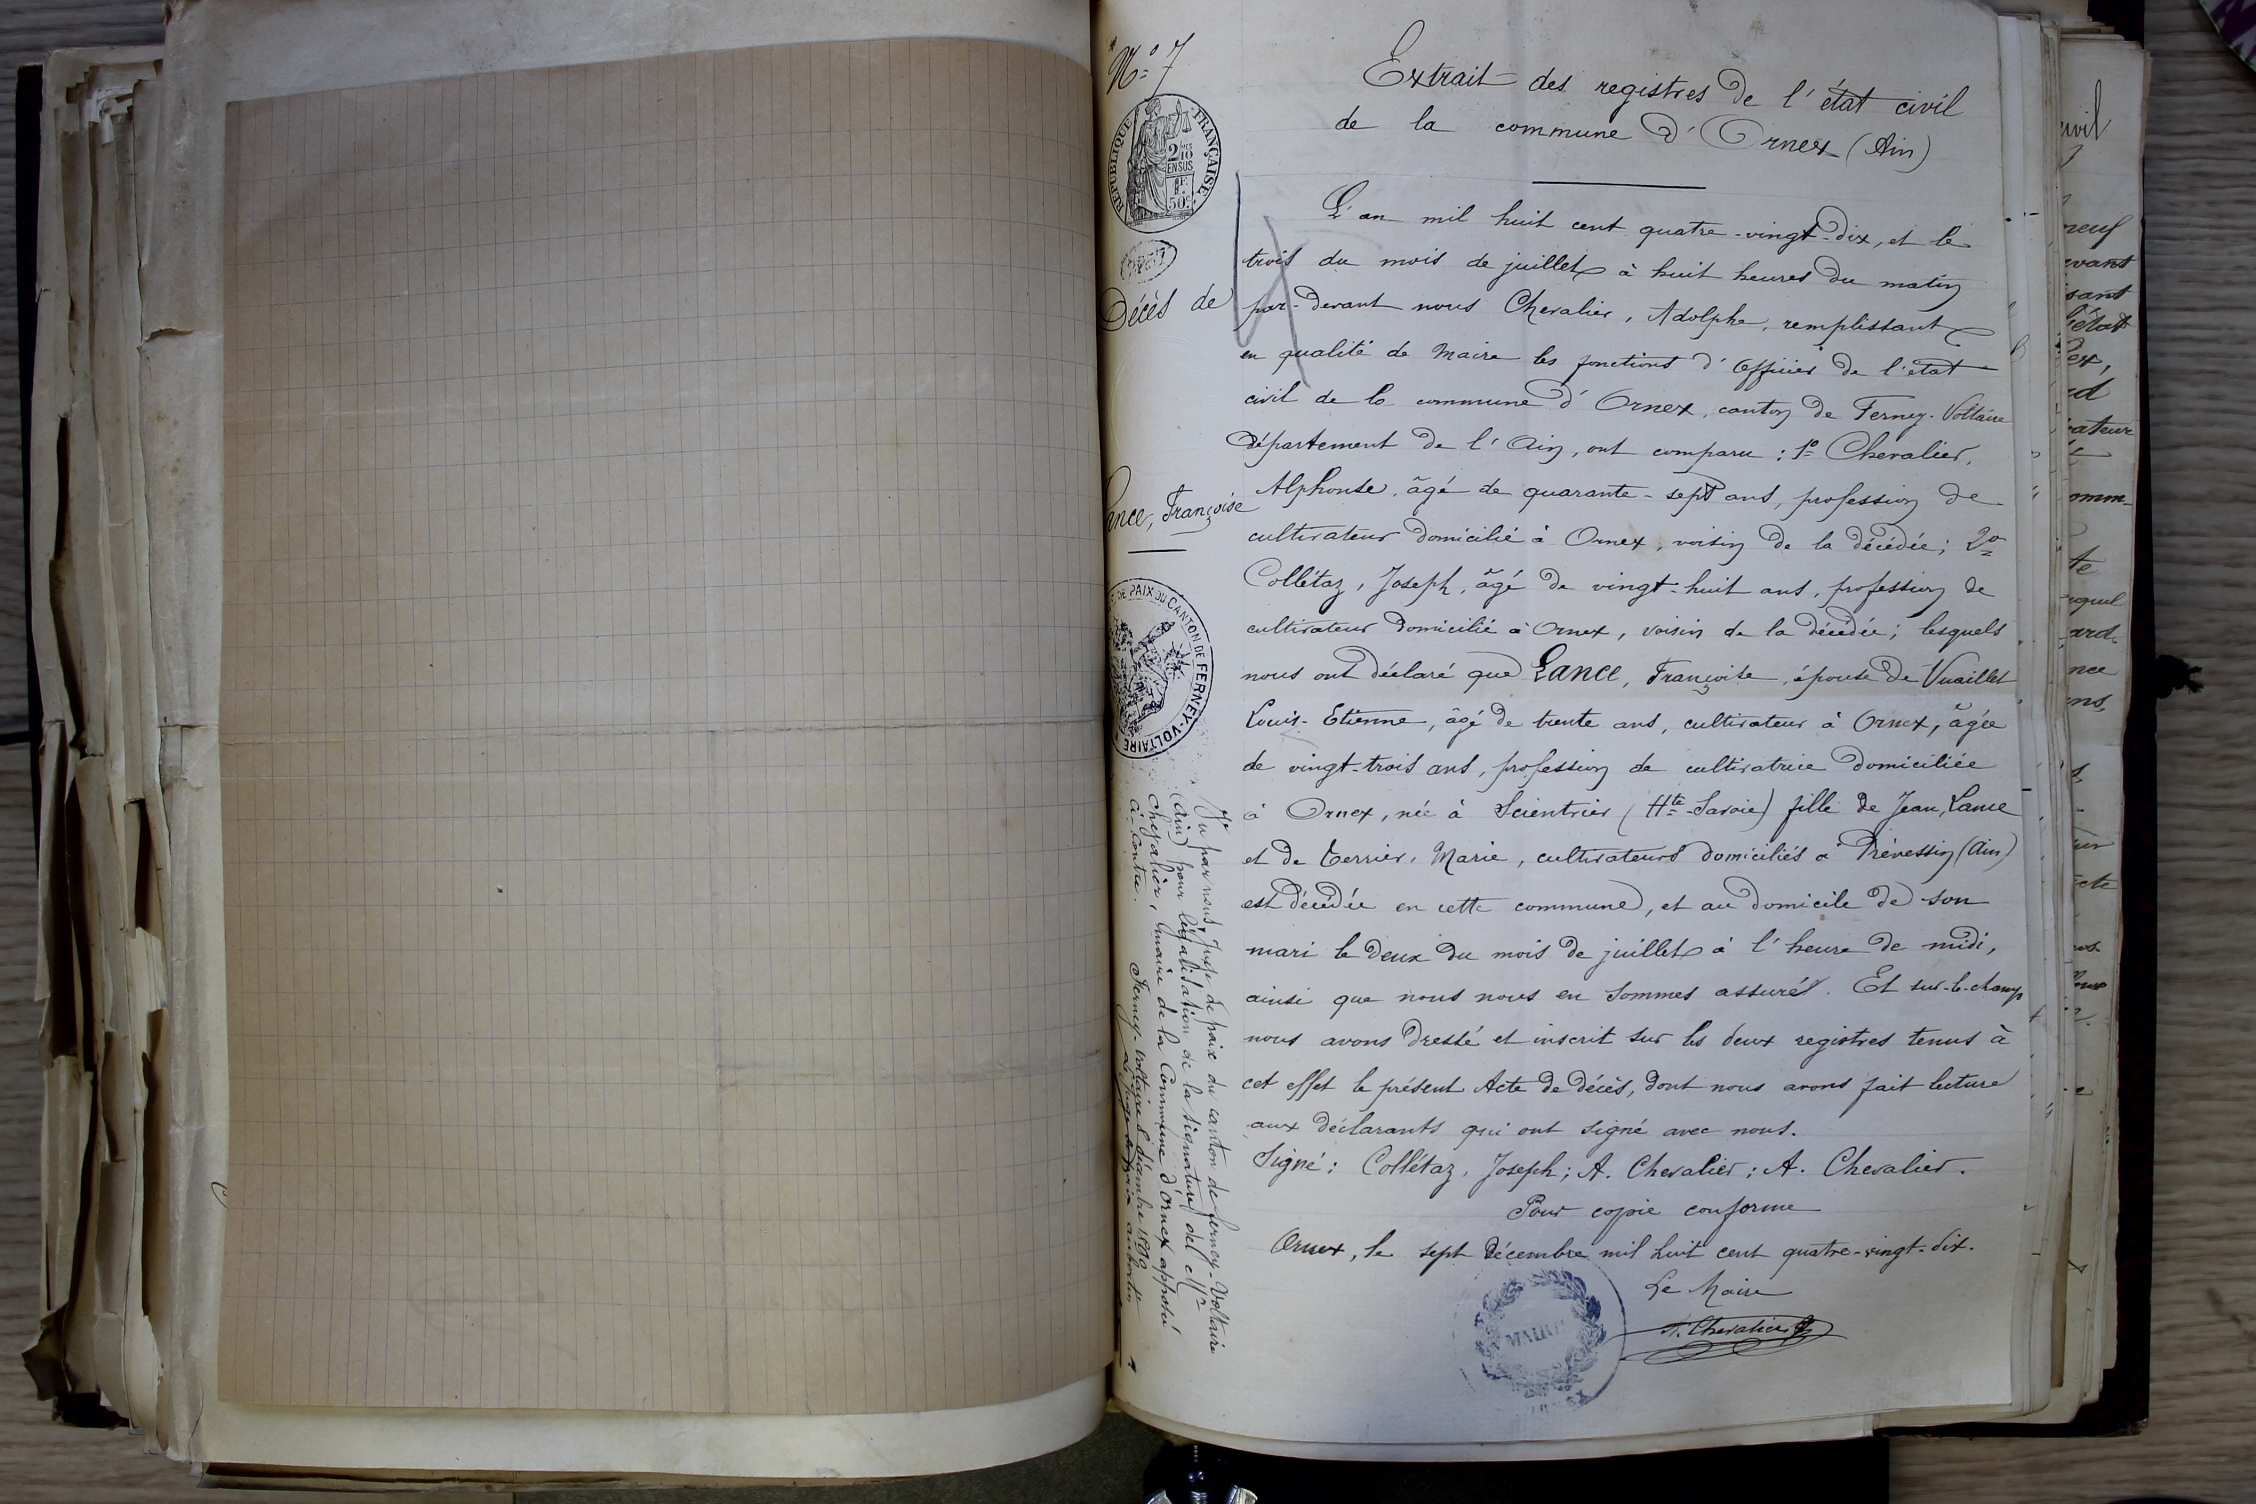 Nº 7
RÉPUBLIQUE FRANÇAISE
2/10
EN SUS
1F.
50c.
Décès de
Lance, Françoise
DE PAIX DU CANTON DE FERNEY-VOLTAIRE
Vu par nous, Juge de paix du canton de Ferney-Voltaire
(Ain) pour légalisation de la signature del Mr
Chevalier, maire de la Commune d'Ornex apposé
ci-contre.
Ferney-Voltaire 8 décembre 1890
Le Juge de paix
Extrait des registres de l'état civil
de la commune d'Ornex (Ain)
L'an mil huit cent quatre-vingt-dix, et le
trois du mois de juillet à huit heures du matin
par-devant nous Chevalier, Adolphe, remplissant
en qualité de Maire les fonctions d'Officier de l'état
civil de la commune d'Ornex, canton de Ferney-Voltaire
département de l'Ain, ont comparu : 1º Chevalier,
Alphonse, âgé de quarante-sept ans, profession de
cultivateur domicilié à Ornex, voisin de la décédée ; 2º
Collétaz, Joseph, âgé de vingt-huit ans, profession de
cultivateur domicilié à Ornex, voisin de la décédée ; lesquels
nous ont déclaré que Lance, Françoise, épouse de Vuaillet
Louis-Etienne, âgé de trente ans, cultivateur à Ornex, âgée
de vingt-trois ans, profession de cultivatrice domiciliée
à Ornex, née à Scientrier (Hte-Savoie) fille de Jean, Lance
et de Terrier, Marie, cultivateurs domiciliés à Prévessin (Ain)
est décédée en cette commune, et au domicile de son
mari le deux du mois de juillet à l'heure de midi,
ainsi que nous nous en sommes assuré. Et sur-le-champ
nous avons dressé et inscrit sur les deux registres tenus à
cet effet le présent Acte de décès, dont nous avons fait lecture
aux déclarants qui ont signé avec nous.
Signé : Collétaz, Joseph ; A. Chevalier ; A. Chevalier.
Pour copie conforme
Ornex, le sept décembre mil huit cent quatre-vingt-dix.
Le Maire
A. Chevalier
MAIRIE